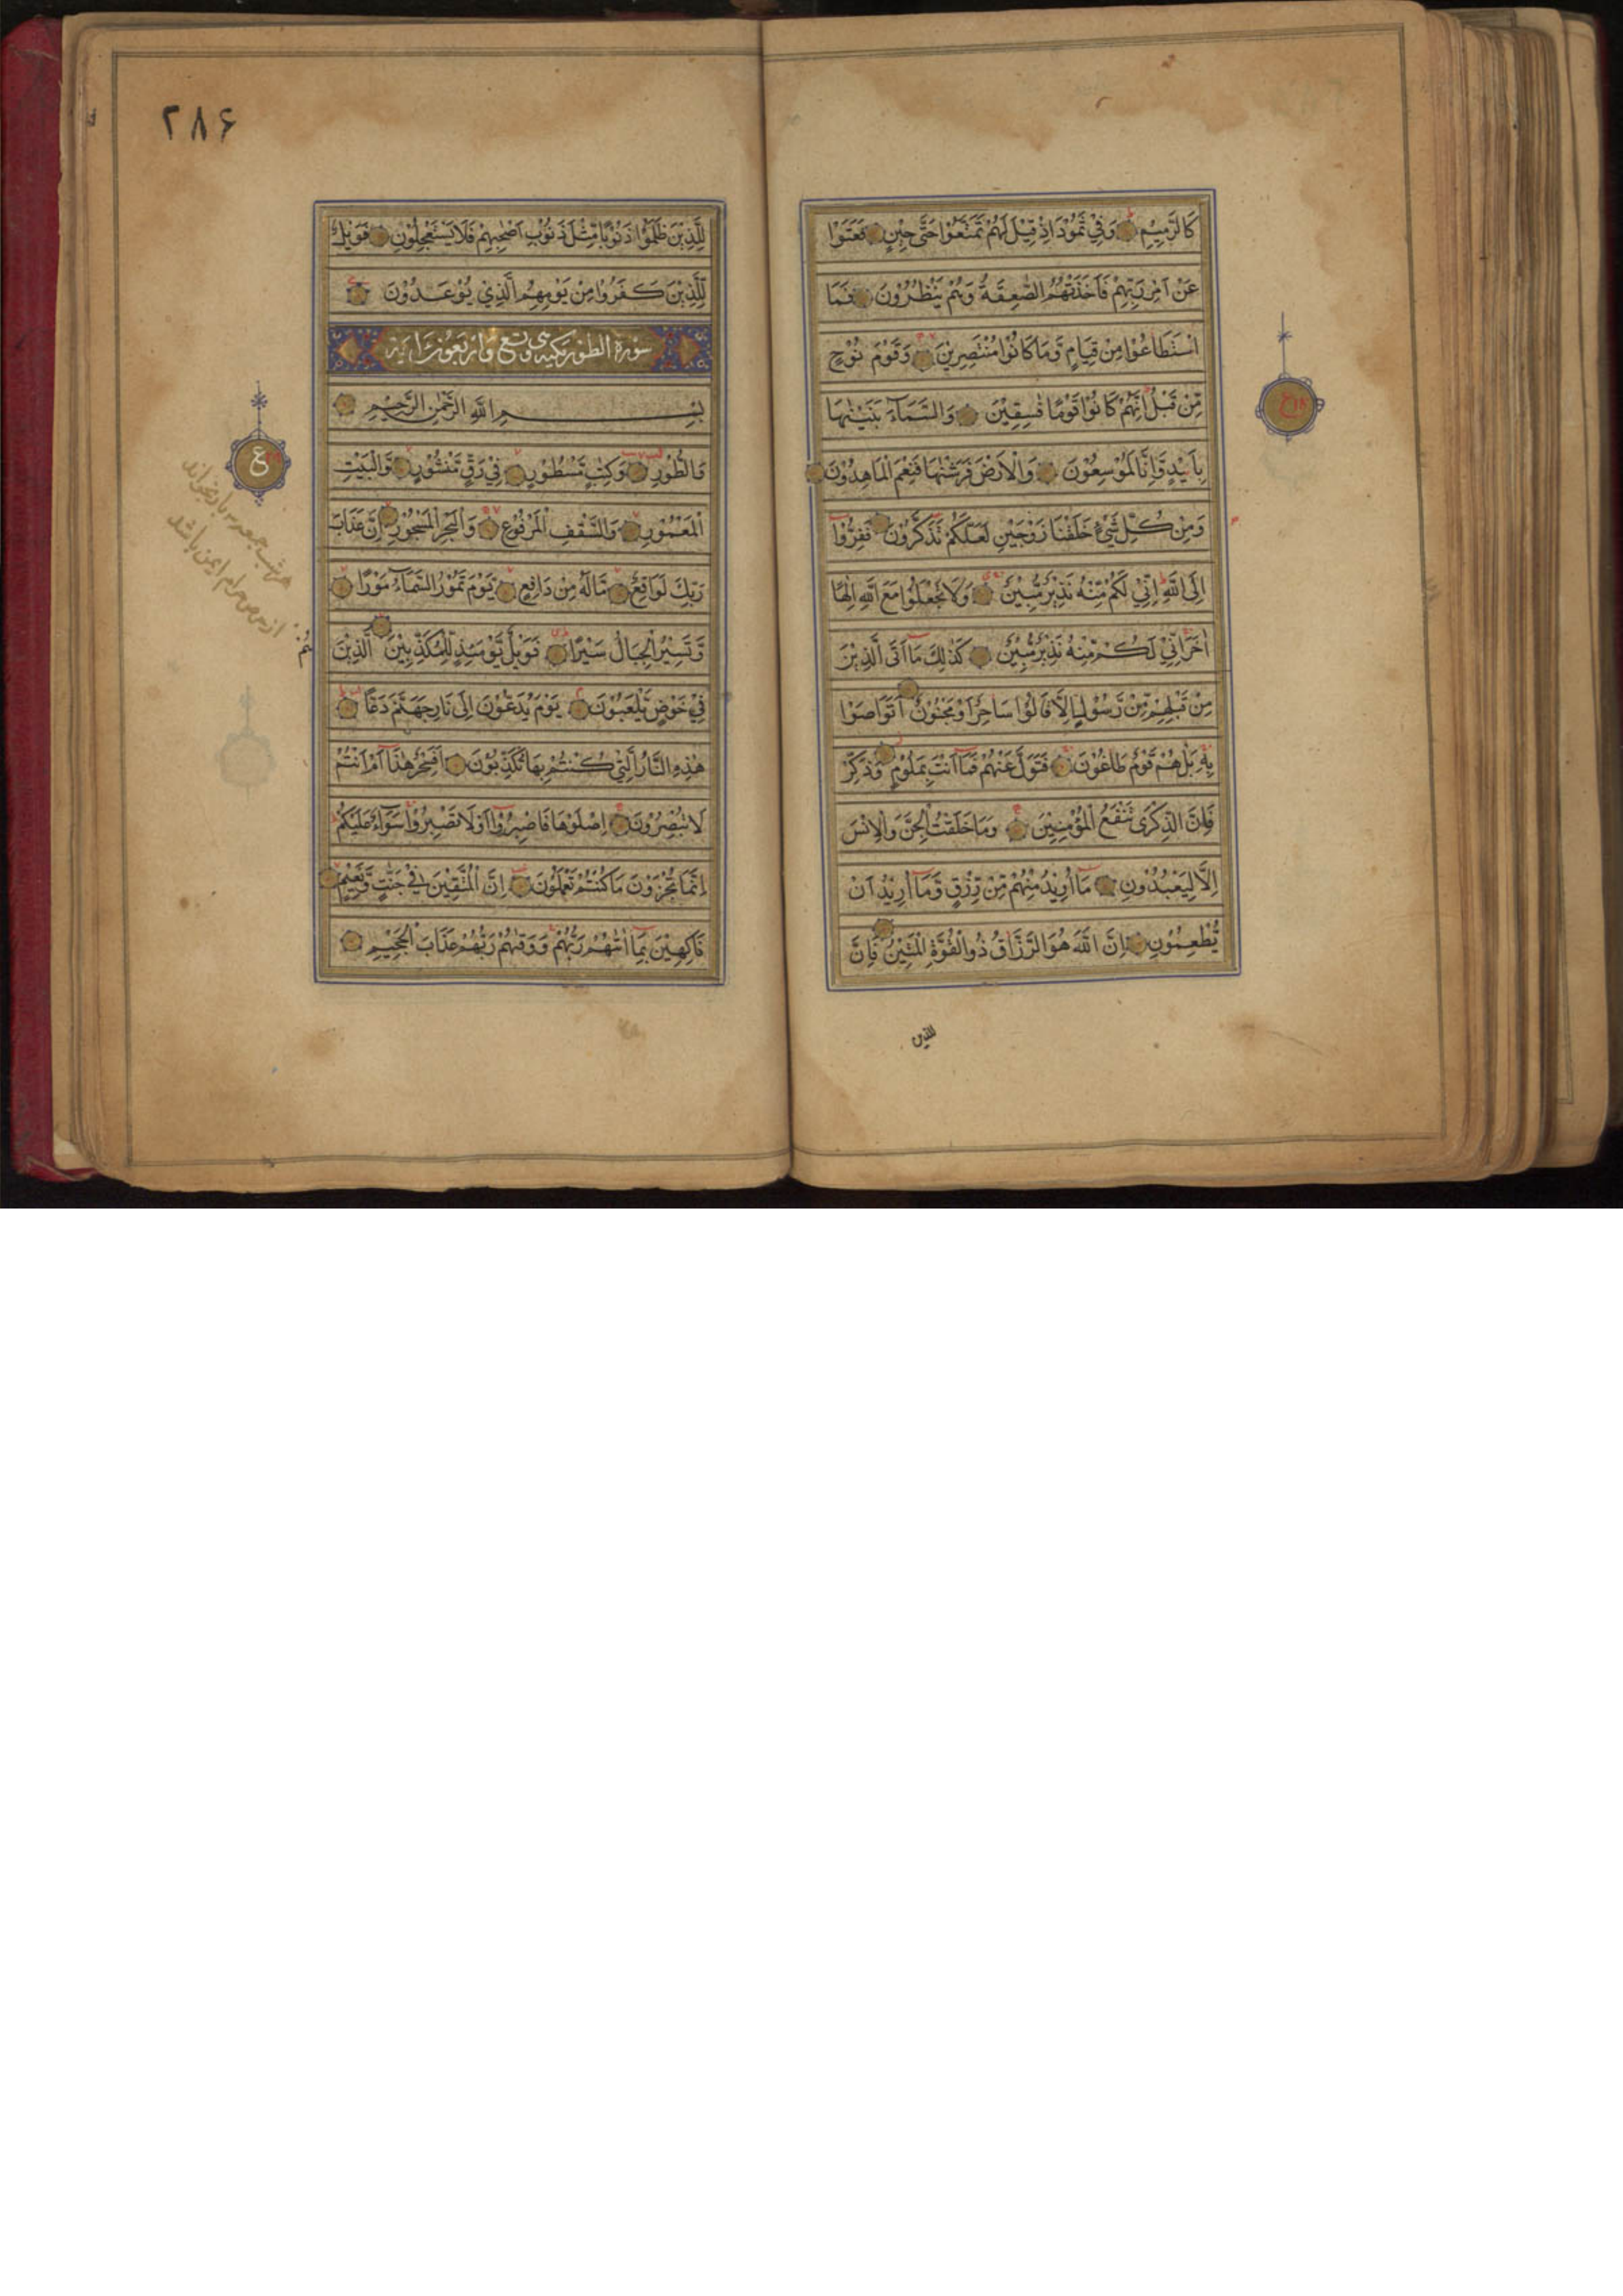 كَالرَّمِيمِ وَفِي ثَمُودَ اِذْ قِيلَ لَهُمْ تَمَتَّعُوا حَتَّى حِينٍ فَعَتَوْا
عَنْ اَمْرِ رَبِّهِمْ فَاَخَذَتْهُمُ الصّٰعِقَةُ وَهُمْ يَنْظُرُونَ فَمَا
اسْتَطَاعُوا مِنْ قِيَامٍ وَّمَا كَانُوا مُنْتَصِرِينَ وَقَوْمَ نُوحٍ
مِّنْ قَبْلُ اِنَّهُمْ كَانُوا قَوْمًا فٰسِقِينَ وَالسَّمَآءَ بَنَيْنٰهَا
بِاَيْدٍ وَّاِنَّا لَمُوسِعُونَ وَالْاَرْضَ فَرَشْنٰهَا فَنِعْمَ الْمَاهِدُونَ
وَمِنْ كُلِّ شَيْءٍ خَلَقْنَا زَوْجَيْنِ لَعَلَّكُمْ تَذَكَّرُونَ فَفِرُّوا
اِلَى اللّٰهِ اِنِّي لَكُمْ مِّنْهُ نَذِيرٌ مُّبِينٌ وَلَا تَجْعَلُوا مَعَ اللّٰهِ اِلٰهًا
اٰخَرَ اِنِّي لَكُمْ مِّنْهُ نَذِيرٌ مُّبِينٌ كَذٰلِكَ مَا اَتَى الَّذِينَ
مِنْ قَبْلِهِمْ مِّنْ رَّسُولٍ اِلَّا قَالُوا سَاحِرٌ اَوْ مَجْنُونٌ اَتَوَاصَوْا
بِهِ بَلْ هُمْ قَوْمٌ طَاغُونَ فَتَوَلَّ عَنْهُمْ فَمَا اَنْتَ بِمَلُومٍ وَّذَكِّرْ
فَاِنَّ الذِّكْرَى تَنْفَعُ الْمُؤْمِنِينَ وَمَا خَلَقْتُ الْجِنَّ وَالْاِنْسَ
اِلَّا لِيَعْبُدُونِ مَا اُرِيدُ مِنْهُمْ مِّنْ رِّزْقٍ وَّمَا اُرِيدُ اَنْ
يُّطْعِمُونِ اِنَّ اللّٰهَ هُوَ الرَّزَّاقُ ذُو الْقُوَّةِ الْمَتِينُ فَاِنَّ
للذين
۲۸۶
لِلَّذِينَ ظَلَمُوا ذَنُوبًا مِّثْلَ ذَنُوبِ اَصْحٰبِهِمْ فَلَا يَسْتَعْجِلُونِ فَوَيْلٌ
لِّلَّذِينَ كَفَرُوا مِنْ يَوْمِهِمُ الَّذِي يُوعَدُونَ
سورة الطور مكية وهي تسع واربعون اية
بِسْمِ اللّٰهِ الرَّحْمٰنِ الرَّحِيمِ
وَالطُّورِ وَكِتٰبٍ مَّسْطُورٍ فِي رَقٍّ مَّنْشُورٍ وَّالْبَيْتِ
الْمَعْمُورِ وَالسَّقْفِ الْمَرْفُوعِ وَالْبَحْرِ الْمَسْجُورِ اِنَّ عَذَابَ
رَبِّكَ لَوَاقِعٌ مَّالَهُ مِنْ دَافِعٍ يَوْمَ تَمُورُ السَّمَآءُ مَوْرًا
وَّتَسِيرُ الْجِبَالُ سَيْرًا فَوَيْلٌ يَّوْمَئِذٍ لِّلْمُكَذِّبِينَ الَّذِينَ
هُمْ
فِي خَوْضٍ يَّلْعَبُونَ يَوْمَ يُدَعُّونَ اِلَى نَارِ جَهَنَّمَ دَعًّا
هٰذِهِ النَّارُ الَّتِي كُنْتُمْ بِهَا تُكَذِّبُونَ اَفَسِحْرٌ هٰذَا اَمْ اَنْتُمْ
لَا تُبْصِرُونَ اِصْلَوْهَا فَاصْبِرُوا اَوْ لَا تَصْبِرُوا سَوَآءٌ عَلَيْكُمْ
اِنَّمَا تُجْزَوْنَ مَا كُنْتُمْ تَعْمَلُونَ اِنَّ الْمُتَّقِينَ فِي جَنّٰتٍ وَّنَعِيمٍ
فَاكِهِينَ بِمَا اٰتٰهُمْ رَبُّهُمْ وَوَقٰهُمْ رَبُّهُمْ عَذَابَ الْجَحِيمِ
ع
هر شب جمعه بار بخواند
از حرام ايمن باشد